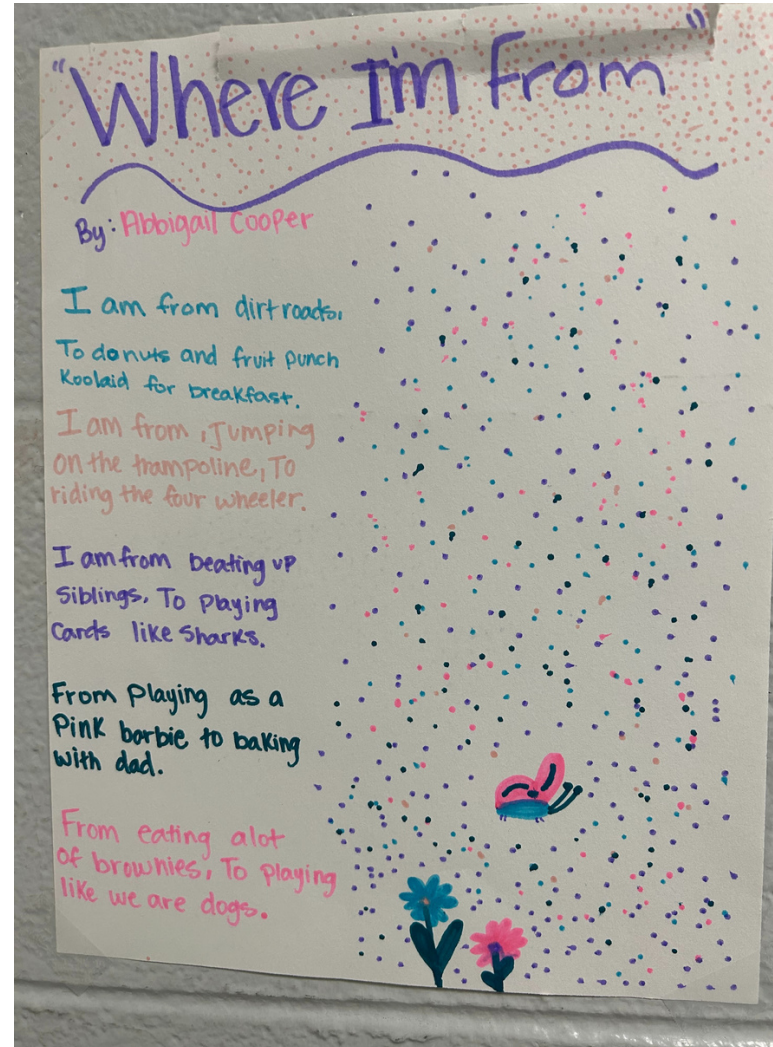 "Where I'm from"
By: Abbigail Cooper
I am from dirt roads.
To donuts and fruit punch
Koolaid for breakfast.
I am from, Jumping
on the trampoline, To
riding the four wheeler.
I am from beating up
Siblings, To Playing
Cards like Sharks.
From Playing as a
Pink barbie to baking
with dad.
From eating alot
of brownies, To Playing
like we are dogs.